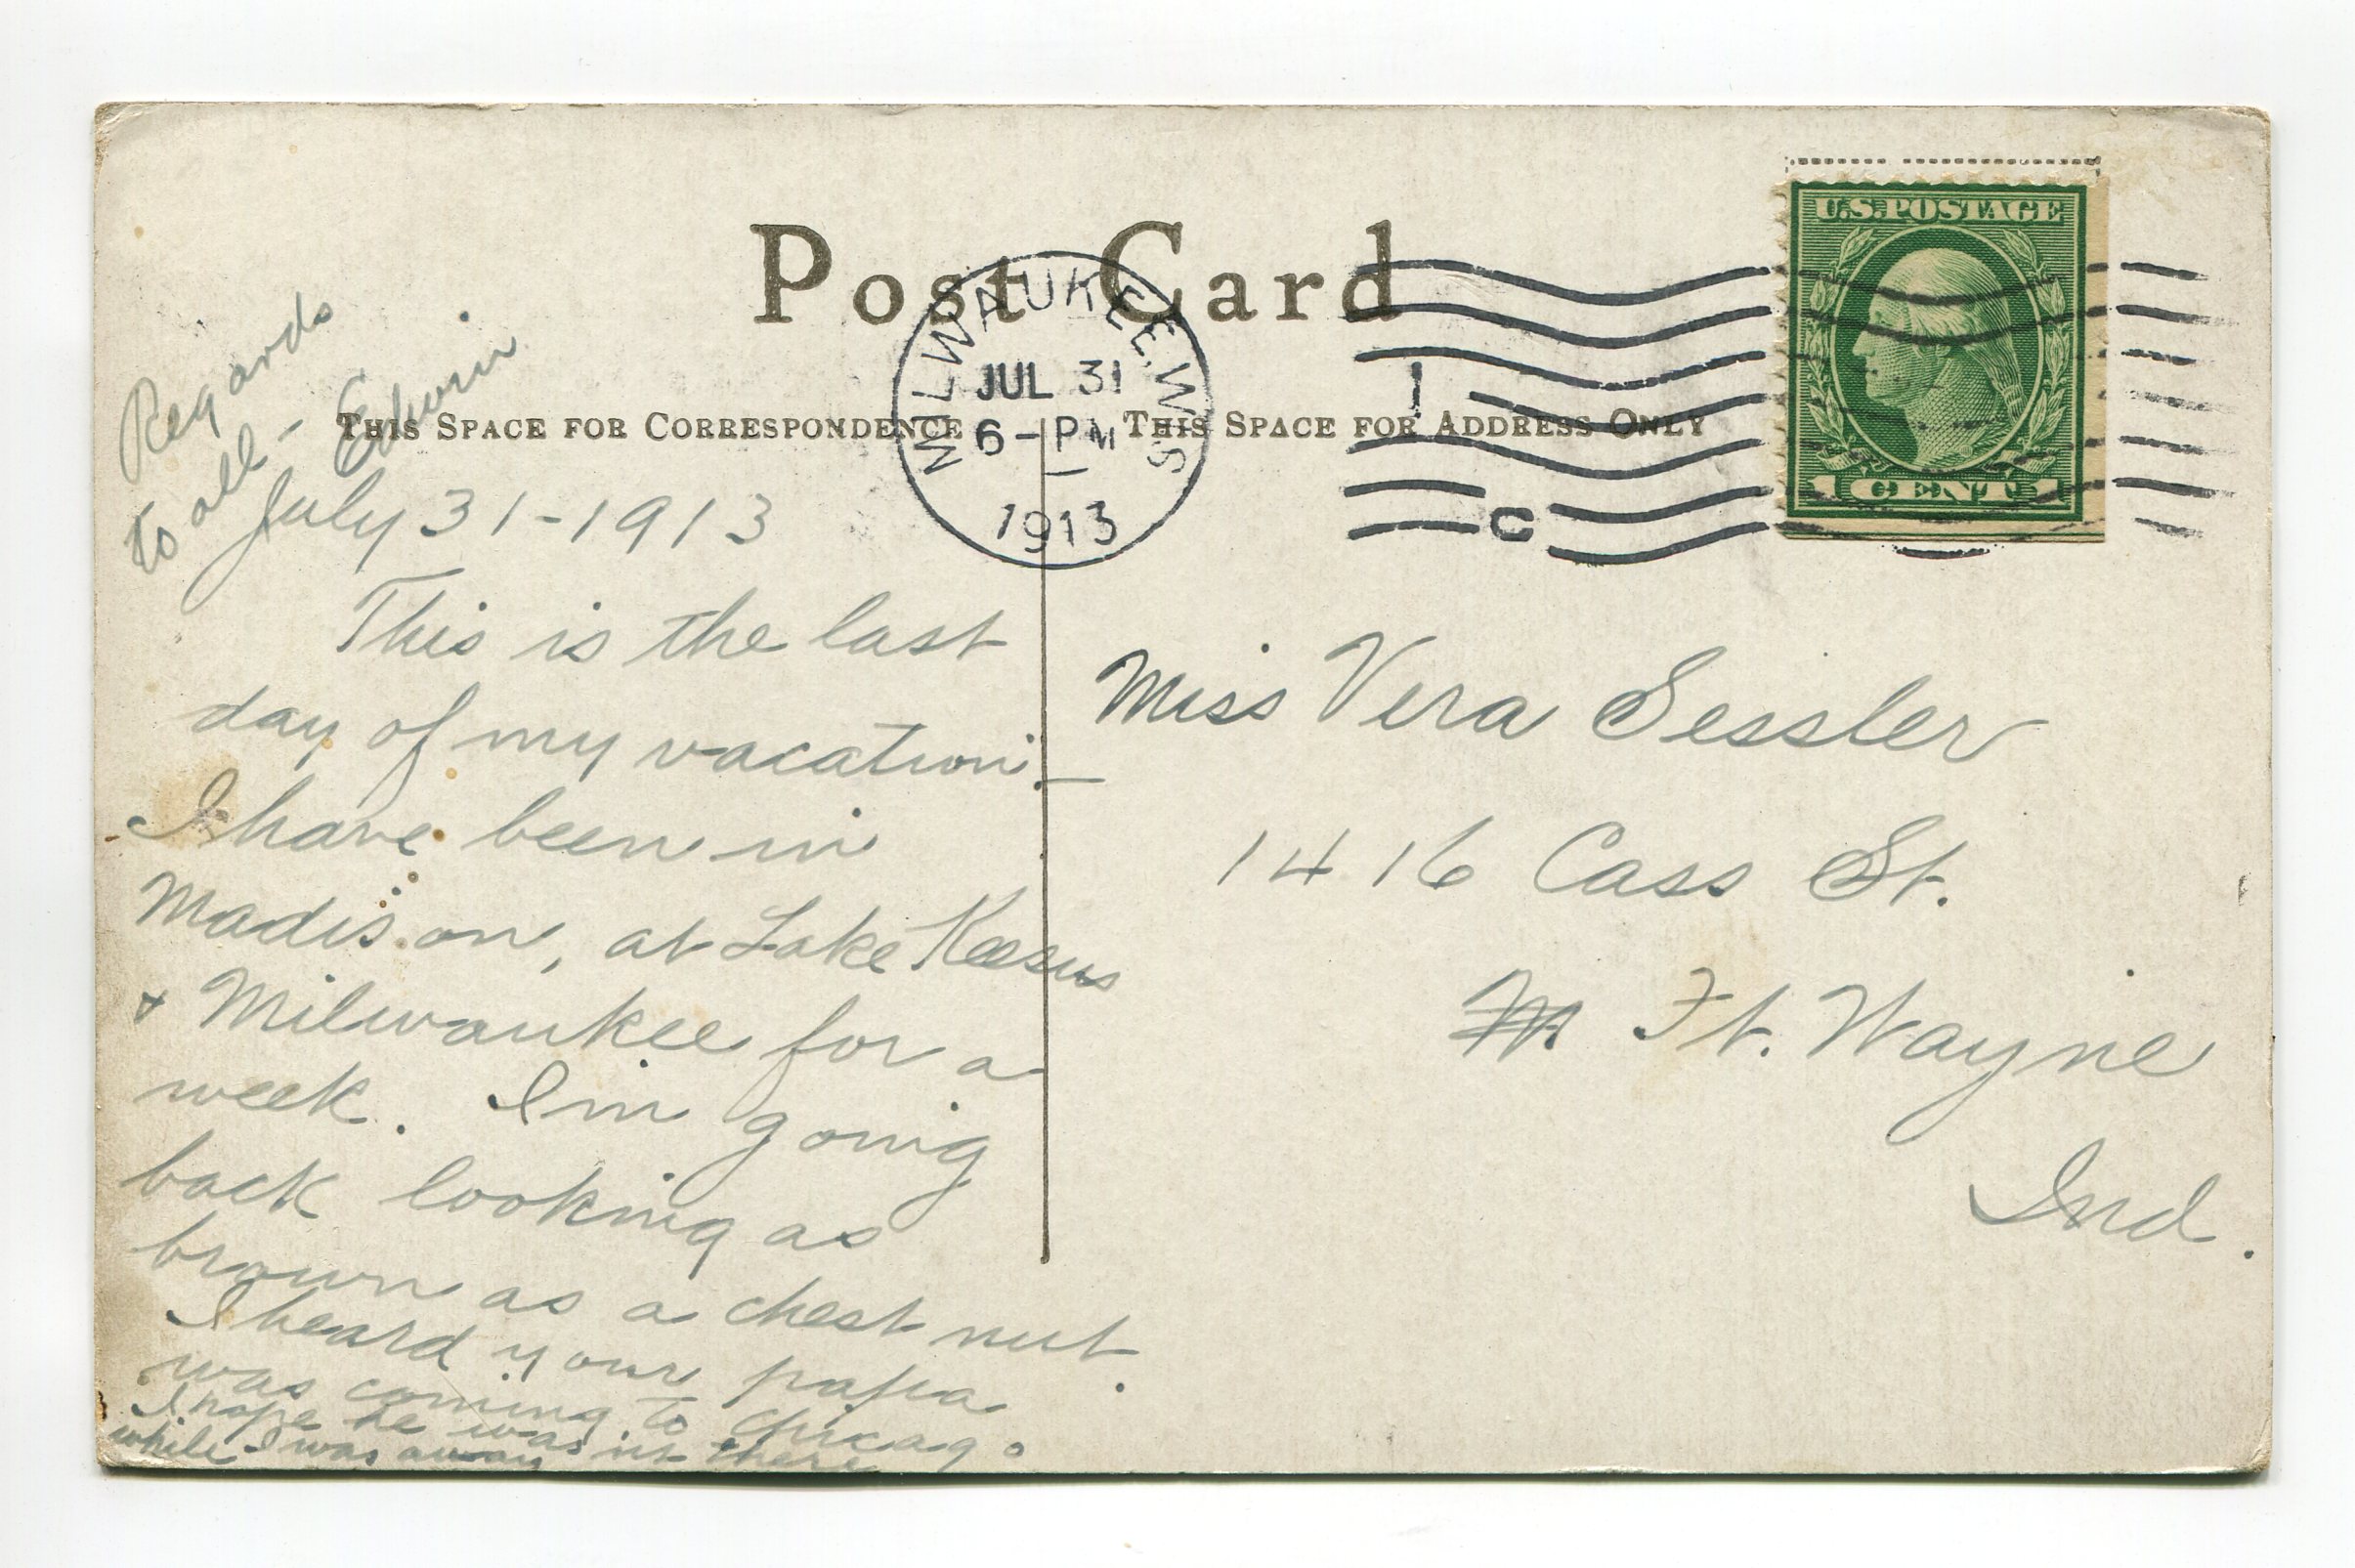 Post Card
MILWAUKEE, WIS
JUL 31
6-PM
1913
U.S. POSTAGE
1 CENT 1
THIS SPACE FOR CORRESPONDENCE
THIS SPACE FOR ADDRESS ONLY
Regards
to all - Edwin
July 31-1913
This is the last
day of my vacation. -
I have been in
Madison, at Lake Keesus
+ Milwaukee for a
week. I'm going
back looking as
brown as a chest nut.
I heard your papa
was coming to Chicago
I hope he was in there
while I was away
Miss Vera Sessler
1416 Cass St.
Ft. Wayne
Ind.